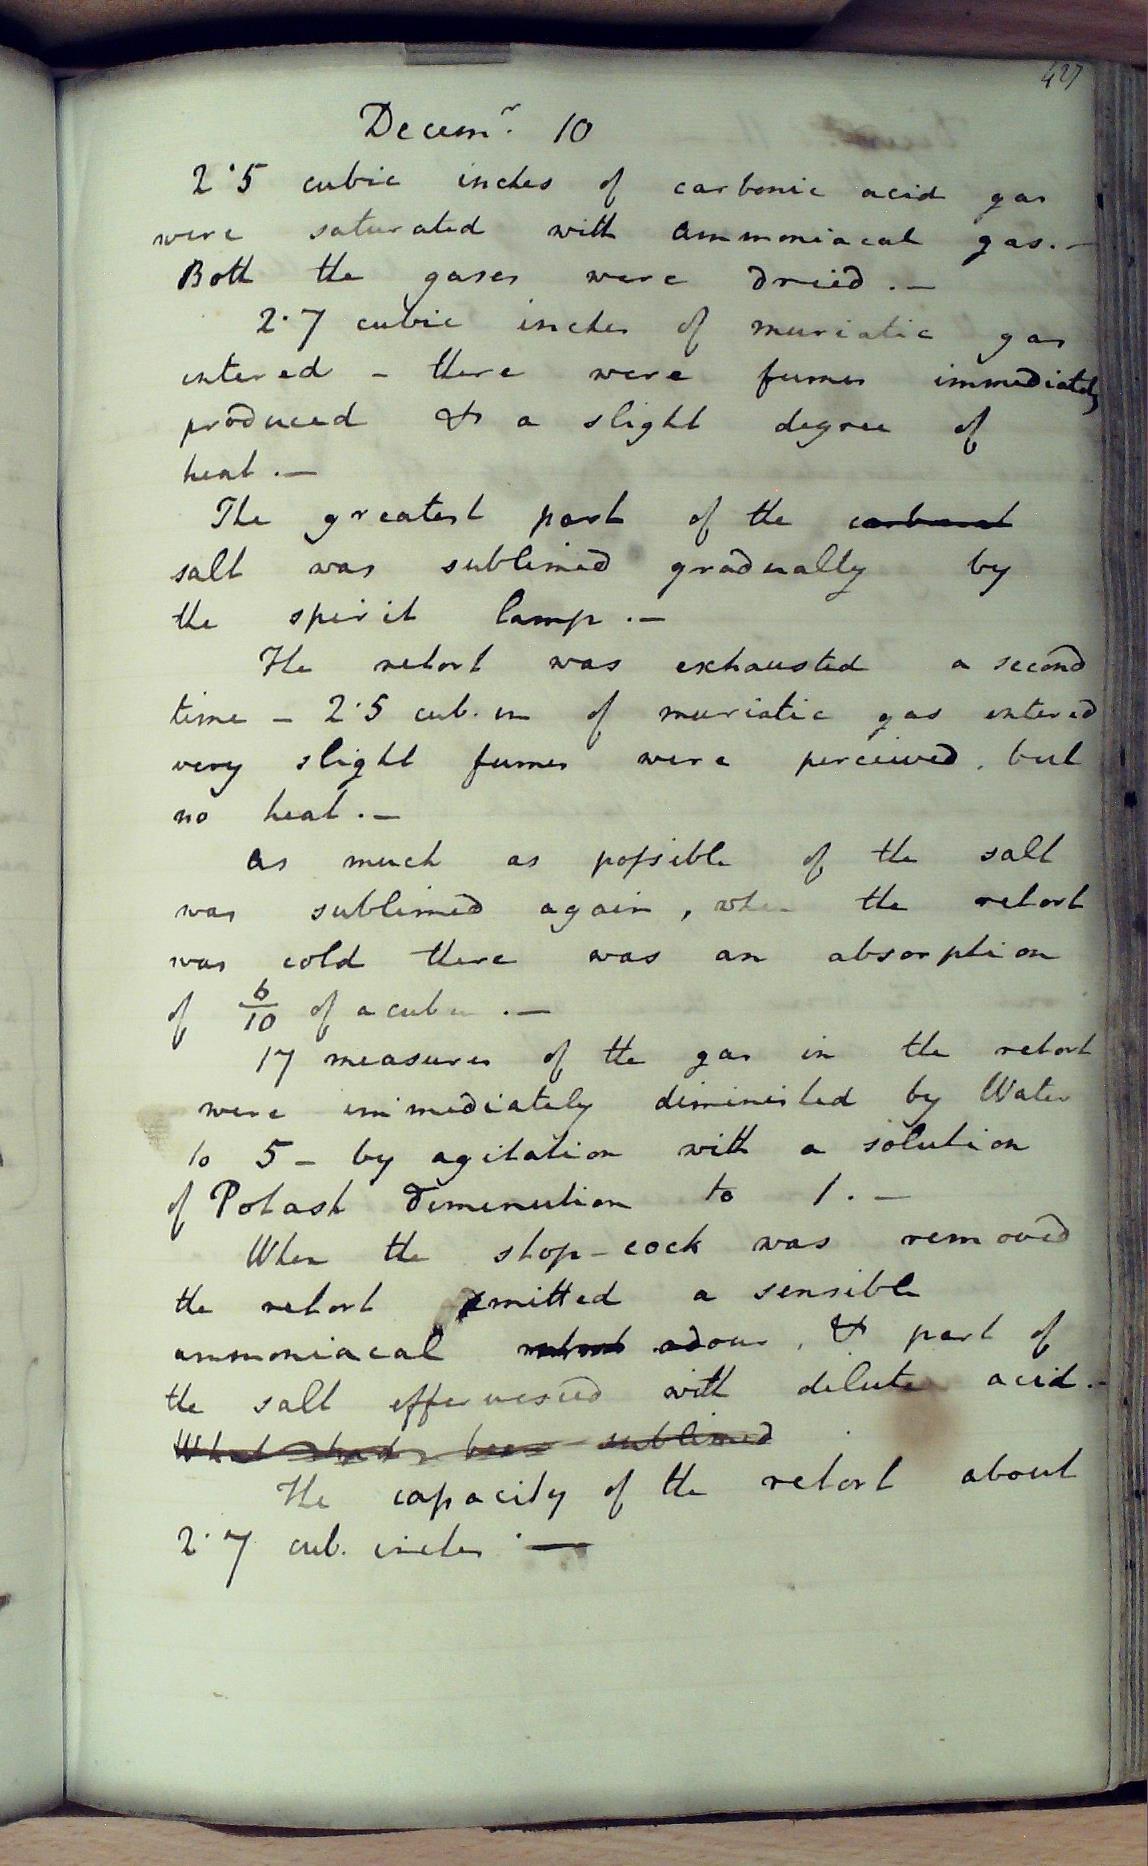 427
Decemr. 10
2.5 cubic inches of carbonic acid gas
were saturated with ammoniacal gas. -
Both the gases were dried. -
2.7 cubic inches of muriatic gas
entered - there were fumes immediately
produced & a slight degree of
heat. -
The greatest part of the carbonat
salt was sublimed gradually by
the spirit lamp. -
The retort was exhausted a second
time - 2.5 cub. in of muriatic gas entered
very slight fumes were perceived, but
no heat. -
as much as possible of the salt
was sublimed again, when the retort
was cold there was an absorption
of 6/10 of a cub in . -
17 measures of the gas in the retort
were immediately diminished by Water
to 5 - by agitation with a solution
of Potash diminution to 1. -
When the stop-cock was removed
the retort emitted a sensible
ammoniacal odour, & part of
the salt effervesced with dilute acid. -
What had been sublimed
The capacity of the retort about
2.7 cub. inches. -